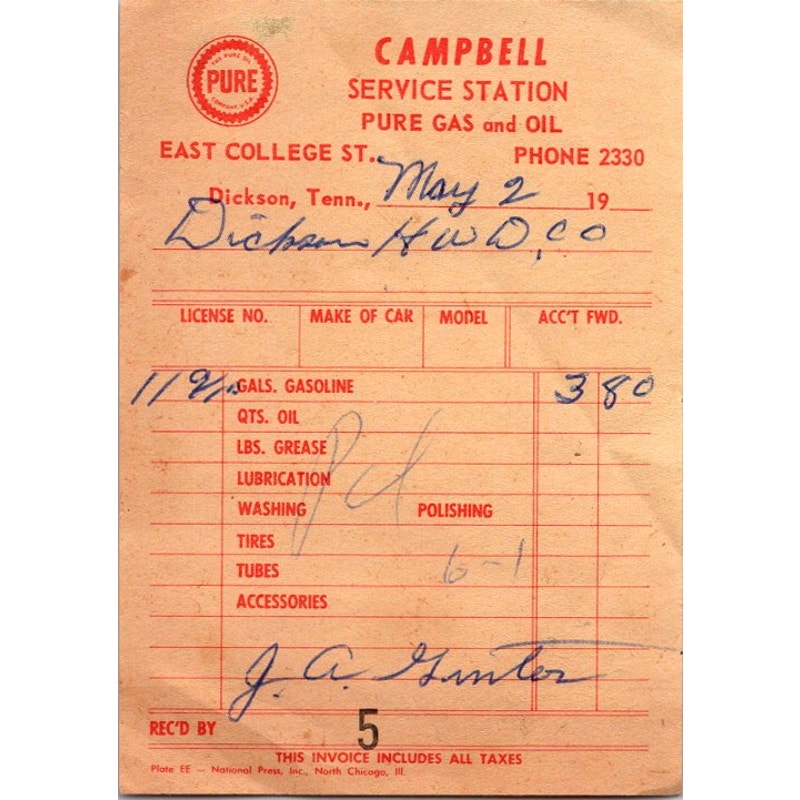 THE PURE OIL
PURE
COMPANY, U.S.A.
CAMPBELL
SERVICE STATION
PURE GAS and OIL
EAST COLLEGE ST. PHONE 2330
Dickson, Tenn., May 2 19
Dickson H W D, CO
LICENSE NO. MAKE OF CAR MODEL ACC'T FWD.
11 9/10 GALS. GASOLINE 3 80
QTS. OIL
LBS. GREASE
LUBRICATION
WASHING POLISHING
TIRES
TUBES
ACCESSORIES
Pd
6-1
J. A. Ginter
REC'D BY 5
THIS INVOICE INCLUDES ALL TAXES
Plate EE — National Press, Inc., North Chicago, Ill.